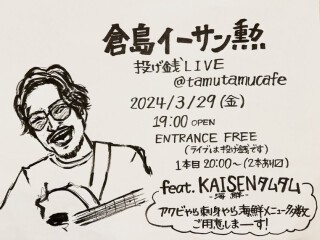 倉島イーサン勲
投げ銭LIVE
@tamutamucafe
2024/3/29(金)
19:00 OPEN
ENTRANCE FREE
(ライブは投げ銭です)
1本目 20:00〜(2本あり〼)
feat. KAISENタムタム
海鮮
アワビやら刺身やら海鮮メニュー多数
ご用意しまーす!